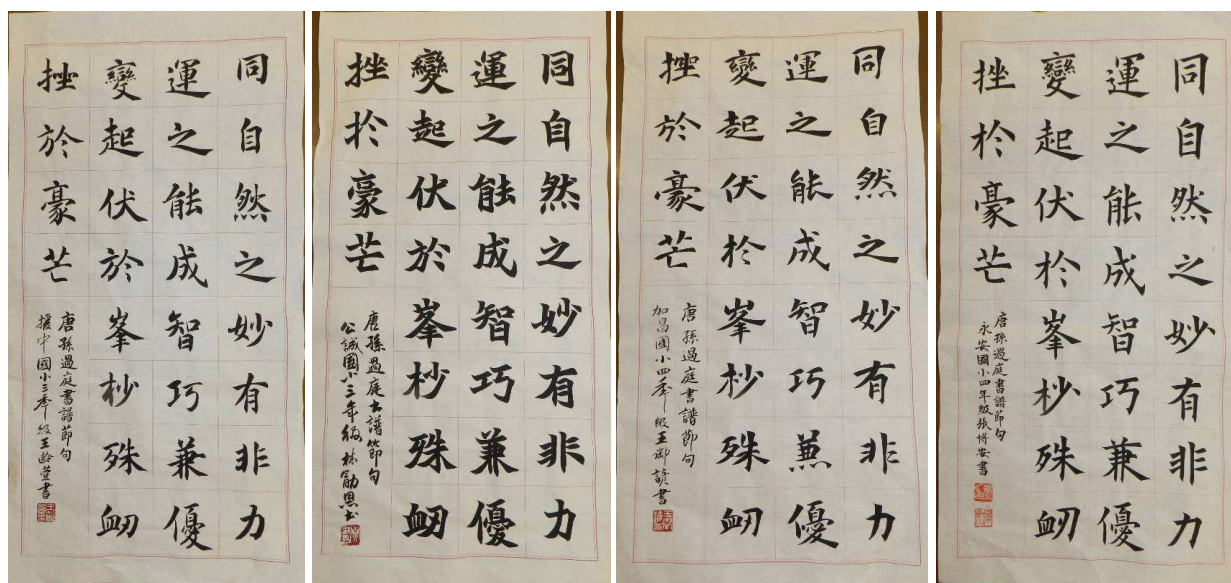 同自然之妙有非力
運之能成智巧兼優
變起伏於峯杪殊衂
挫於豪芒
唐孫過庭書譜節句
援中國小三年級王齡萱書
同自然之妙有非力
運之能成智巧兼優
變起伏於峯杪殊衂
挫扵豪芒
唐孫過庭書譜節句
公誠國小三年級林勵恩書
同自然之妙有非力
運之能成智巧兼優
變起伏扵峯杪殊衂
挫於豪芒
唐孫過庭書譜節句
加昌國小四年級王御書
同自然之妙有非力
運之能成智巧兼優
變起伏扵峯杪殊衂
挫扵豪芒
唐孫過庭書譜節句
永安國小四年級張博安書